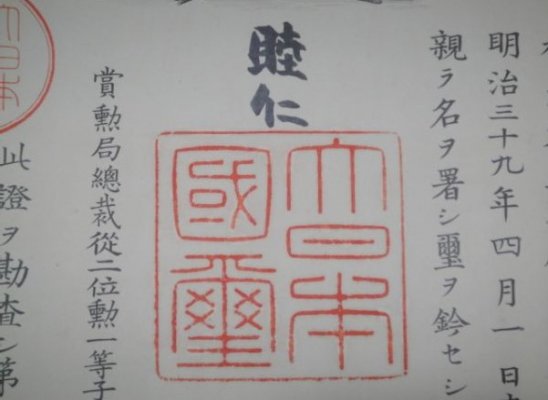 明治三十九年四月一日
親ラ名ヲ署シ璽ヲ鈐セシ
睦仁
大日本
國璽
賞勲局總裁從二位勲一等子
此證ヲ勘査シ第
大日本